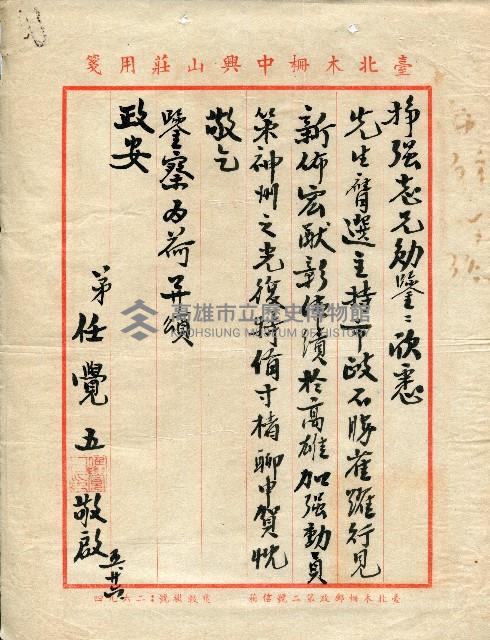 臺北木柵中興山莊用箋
掙强志兄勛鑒:欣悉
先生膺選主持市政不勝雀躍行見
新佈宏猷彰偉績於高雄加强動員
策神州之光復特備寸楮聊申賀忱
敬乞
鑒察為荷並頌
政安
弟任覺五敬啟
五.廿六
高雄市立歷史博物館
KAOHSIUNG MUSEUM OF HISTORY
臺北木柵郵政第二號信箱